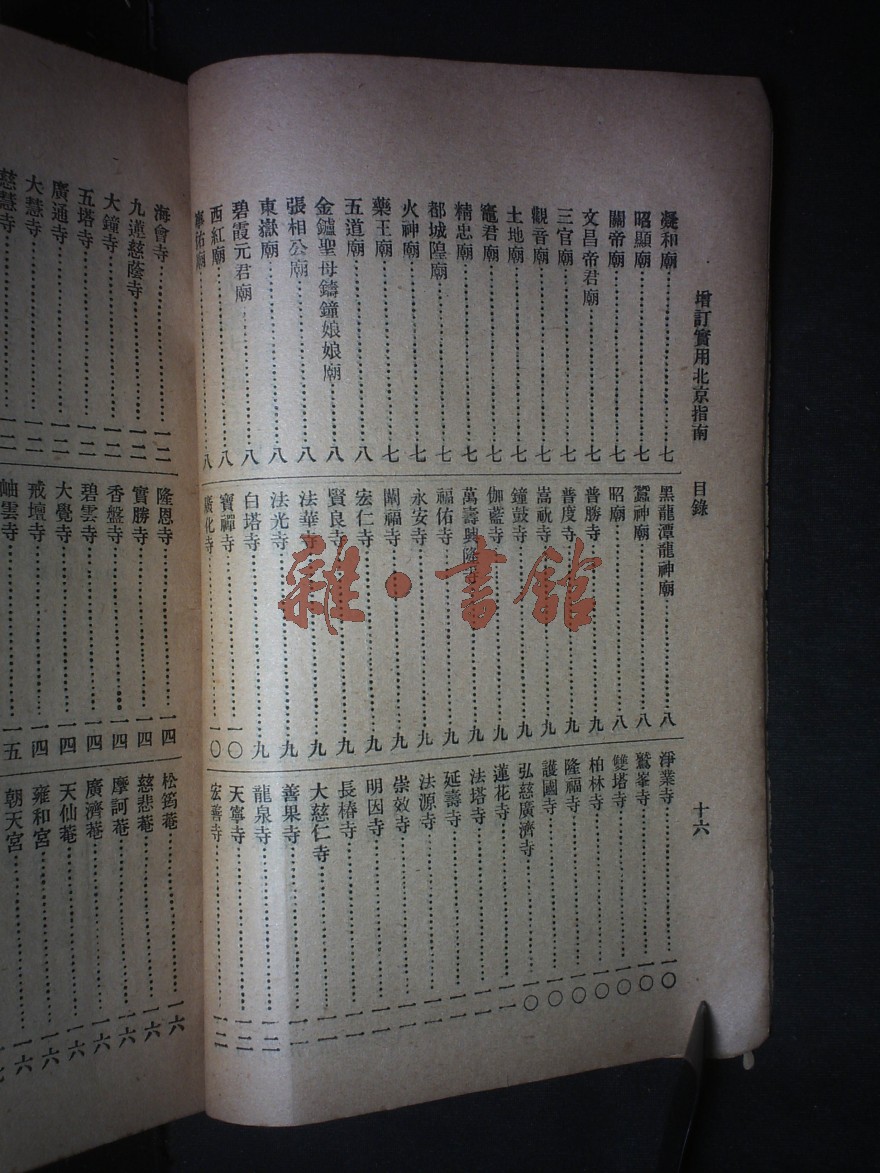 增訂實用北京指南 目錄 十六
凝和廟 七
昭顯廟 七
關帝廟 七
文昌帝君廟 七
三官廟 七
觀音廟 七
土地廟 七
竈君廟 七
精忠廟 七
都城隍廟 七
火神廟 七
藥王廟 七
五道廟 八
金鑪聖母鑄鐘娘娘廟 八
張相公廟 八
東嶽廟 八
碧霞元君廟 八
西紅廟 八
佑廟 八
黑龍潭龍神廟 八
蠶神廟 八
昭廟 八
普勝寺 九
普度寺 九
嵩祝寺 九
鐘鼓寺 九
伽藍寺 九
萬壽興隆寺 九
福佑寺 九
永安寺 九
闡福寺 九
宏仁寺 九
賢良寺 九
法華寺 九
法光寺 九
白塔寺 九
寶禪寺 一〇
廣化寺 一〇
淨業寺 一〇
鷲峯寺 一〇
雙塔寺 一〇
柏林寺 一〇
隆福寺 一〇
護國寺 一〇
弘慈廣濟寺 一〇
蓮花寺 一一
法塔寺 一一
延壽寺 一一
法源寺 一一
崇效寺 一一
明因寺 一一
長椿寺 一一
大慈仁寺 一一
善果寺 一一
龍泉寺 一二
天寧寺 一二
宏善寺 一二
海會寺 一二
九蓮慈蔭寺 一二
大鐘寺 一二
五塔寺 一二
廣通寺 一二
大慧寺 一二
慈慧寺 一二
隆恩寺 一四
寶勝寺 一四
香盤寺 一四
碧雲寺 一四
大覺寺 一四
戒壇寺 一四
岫雲寺 一五
松筠菴 一六
慈悲菴 一六
摩訶菴 一六
廣濟菴 一六
天仙菴 一六
雍和宮 一六
朝天宮
雜·書館